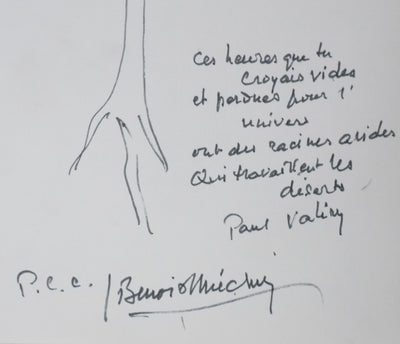 Ces heures que tu
croyais vides
et perdues pour l'
univers
ont des racines avides
Qui travaillent les
déserts
Paul Valéry
P.c.c. / Benoist-Méchin